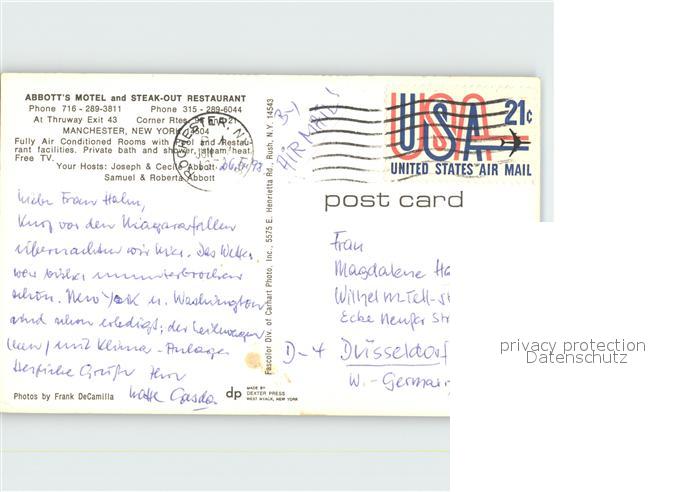 ABBOTT'S MOTEL and STEAK-OUT RESTAURANT
Phone 716 - 289-3811 Phone 315 - 289-6044
At Thruway Exit 43 Corner Rtes. 96 & 21
MANCHESTER, NEW YORK
Fully Air Conditioned Rooms with Pool and Restau-
rant facilities. Private bath and shower, steam heat.
Free TV.
Your Hosts: Joseph & Cecile Abbott
Samuel & Roberta Abbott
ROCHESTER, NY
AIR MAIL!
USA 21c
UNITED STATES AIR MAIL
post card
Liebe Frau Hahn,
Kurz vor den Niagarafällen
übernachten wir hier. Das Wetter
war bisher ununterbrochen
schön. New York u. Washington
sind schon erledigt; der Leihwagen
mit Klima-Anlage
Herzliche Grüße Ihr
Frau
Magdalene Ha
Wilhelm-Tell-St
Ecke Neußer Str
D-4 Düsseldorf
W.-German
Fascolor Div. of Carhart Photo, Inc., 5575 E. Henrietta Rd., Rush, N.Y. 14543
Photos by Frank DeCamilla
dp MADE BY
DEXTER PRESS
WEST NYACK, NEW YORK
privacy protection
Datenschutz